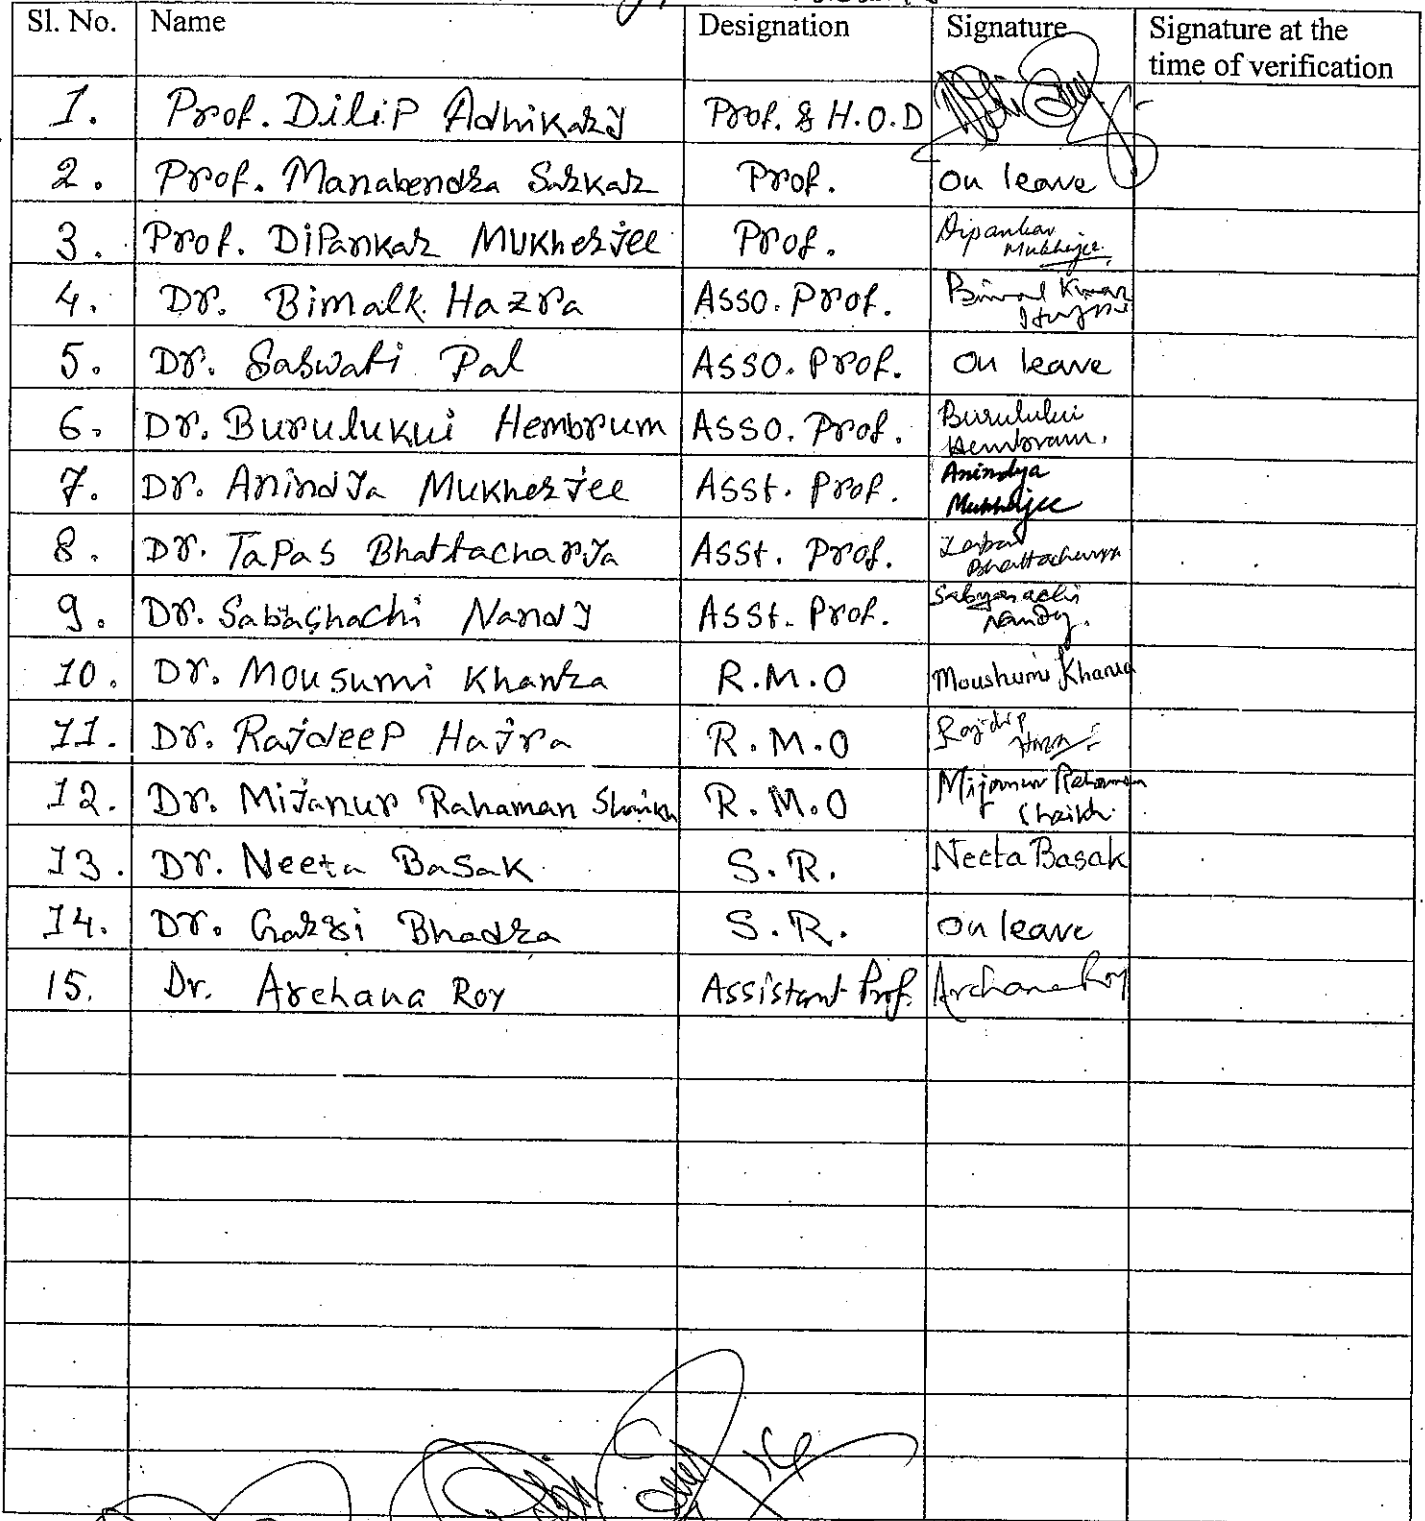 Sl. No. Name Designation Signature Signature at the time of verification
1. Prof. Dilip Adhikary Prof. & H.O.D
2. Prof. Manabendra Sarkar Prof. On leave
3. Prof. Dipankar Mukherjee Prof. Dipankar Mukherjee.
4. Dr. Bimalk. Hazra Asso. Prof. Bimal Kumar
5. Dr. Saswati Pal Asso. Prof. On leave
6. Dr. Burulukui Hembrum Asso. Prof. Burulukui Hembram.
7. Dr. Anindya Mukherjee Asst. Prof. Anindya Mukherjee
8. Dr. Tapas Bhattacharya Asst. Prof. Tapas Bhattacharyya
9. Dr. Sabashachi Nandy Asst. Prof. Sabyasachi Nandy.
10. Dr. Mousumi Khanra R.M.O Moushumi Khanra
11. Dr. Rajdeep Hajra R.M.O Rajdip Hazra
12. Dr. Mijanur Rahaman Shaikh R.M.O Mijanur Rahaman Shaikh
13. Dr. Neeta Basak S.R. Neeta Basak
14. Dr. Gargi Bhadra S.R. On leave
15. Dr. Archana Roy Assistant Prof. Archana Roy